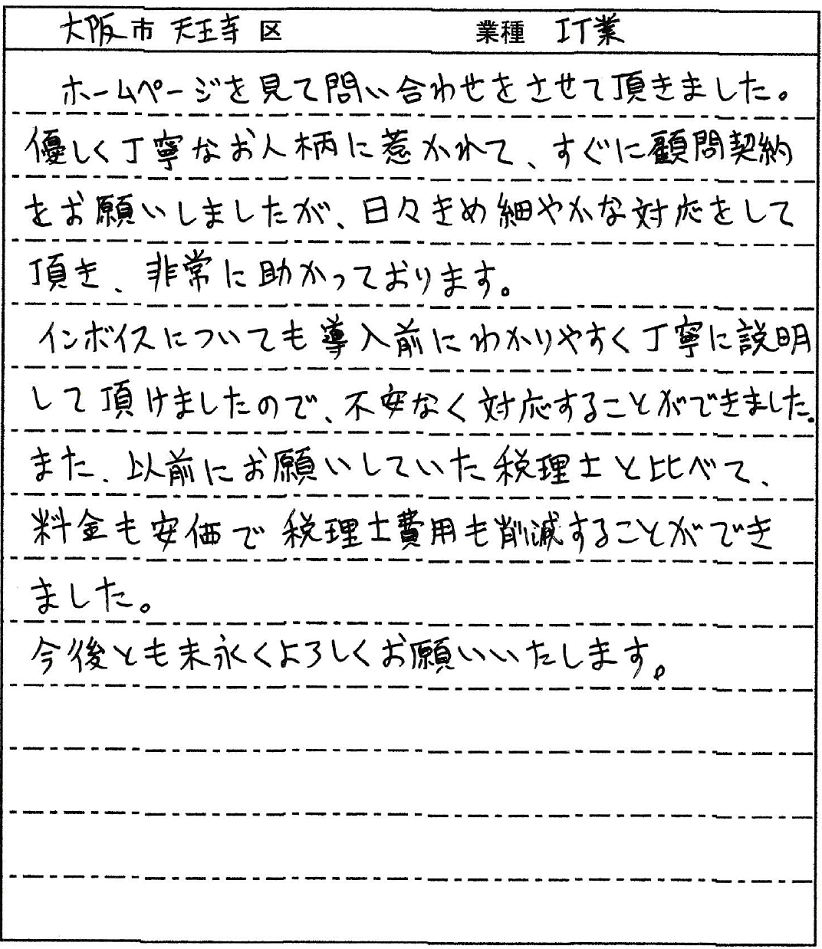 大阪市 天王寺 区 業種 IT業
ホームページを見て問い合わせをさせて頂きました。
優しく丁寧なお人柄に惹かれて、すぐに顧問契約
をお願いしましたが、日々きめ細やかな対応をして
頂き、非常に助かっております。
インボイスについても導入前にわかりやすく丁寧に説明
して頂けましたので、不安なく対応することができました。
また、以前にお願いしていた税理士と比べて、
料金も安価で税理士費用も削減することができ
ました。
今後とも末永くよろしくお願いいたします。